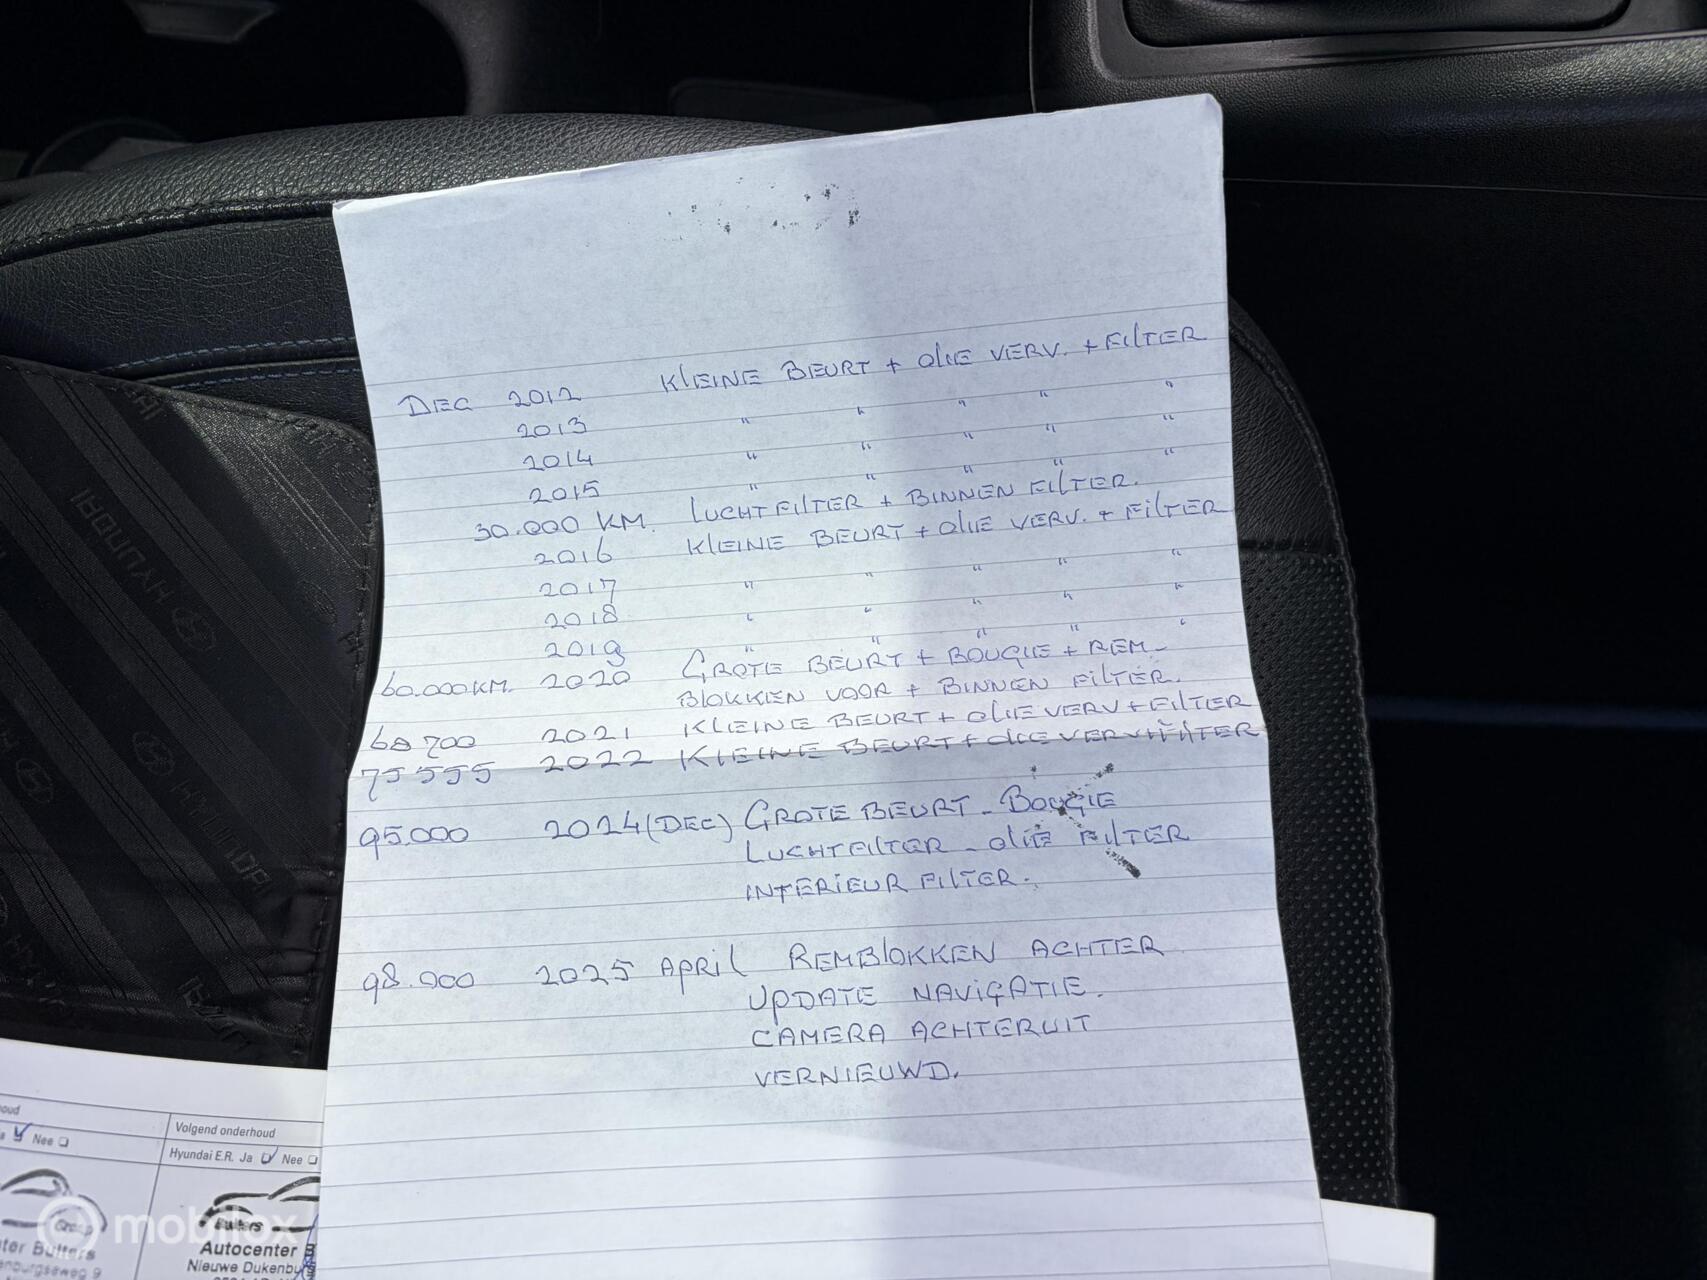 DEC 2012 KLEINE BEURT + OLIE VERV. + FILTER
2013 " " " " "
2014 " " " " "
2015 " " " " "
30.000 KM. LUCHTFILTER + BINNEN FILTER.
2016 KLEINE BEURT + OLIE VERV. + FILTER
2017 " " " " "
2018 " " " " "
2019 " " " " "
60.000 KM. 2020 GROTE BEURT + BOUGIE + REM-
BLOKKEN VOOR + BINNEN FILTER.
2021 KLEINE BEURT + OLIE VERV + FILTER
75555 2022 KLEINE BEURT + OLIE VERV + FILTER
95.000 2024 (DEC) GROTE BEURT - BOUGIE
LUCHTFILTER - OLIE FILTER
INTERIEUR FILTER.
98.000 2025 APRIL REMBLOKKEN ACHTER
UPDATE NAVIGATIE.
CAMERA ACHTERUIT
VERNIEUWD.
HYUNDAI
HYUNDAI
Nee
Volgend onderhoud
Hyundai E.R. Ja Nee
Group
Bulters
Bulters
Autocenter B
Nieuwe Dukenbu
mobilox